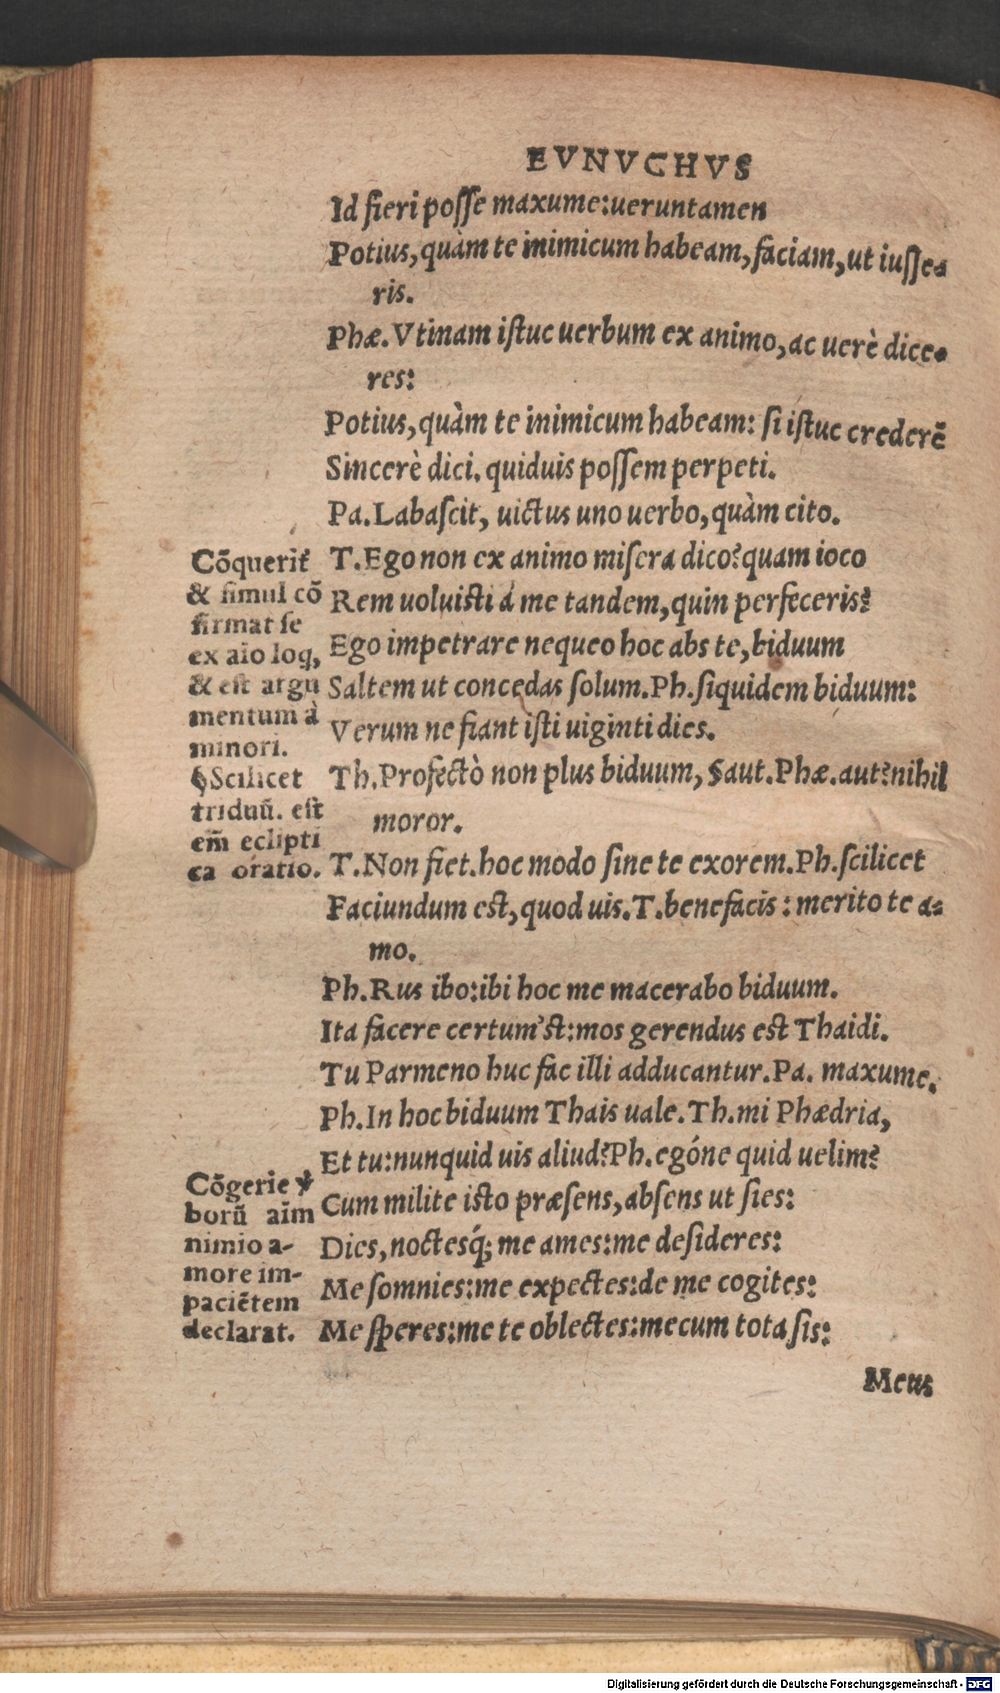 EVNVCHVS
Id fieri posse maxume:ueruntamen
Potius,quàm te inimicum habeam,faciam,ut iusse-
ris.
Phæ.Vtinam istuc uerbum ex animo,ac uerè dice-
res:
Potius,quàm te inimicum habeam: si istuc crederẽ
Sincerè dici.quiduis possem perpeti.
Pa.Labascit, uictus uno uerbo,quàm cito.
T.Ego non ex animo misera dico?quam ioco
Rem uoluisti á me tandem,quin perfeceris?
Ego impetrare nequeo hoc abs te,biduum
Saltem ut concedas solum.Ph.siquidem biduum:
Verum ne fiant isti uiginti dies.
Th.Profectò non plus biduum, §aut.Phæ.aut?nihil
moror.
T.Non fiet.hoc modo sine te exorem.Ph.scilicet
Faciundum est,quod uis.T.benefacis:merito te a-
mo.
Ph.Rus ibo:ibi hoc me macerabo biduum.
Ita facere certum'st:mos gerendus est Thaidi.
Tu Parmeno huc fac illi adducantur.Pa. maxume.
Ph.In hoc biduum Thais uale.Th.mi Phædria,
Et tu:nunquid uis aliud?Ph.egóne quid uelim?
Cum milite isto præsens,absens ut sies:
Dies,noctesq́; me ames:me desideres:
Me somnies:me expectes:de me cogites:
Me speres:me te oblectes:mecum tota sis:
Meus
Cõquerit
& simul cõ
firmat se
ex aĩo loq,
& est argu
mentum à
minori.
§Scilicet
triduũ. est
em̃ eclipti
ca oratio.
Cõgerie
borũ aĩm
nimio a-
more im-
paciẽtem
declarat.
Digitalisierung gefördert durch die Deutsche Forschungsgemeinschaft - DFG